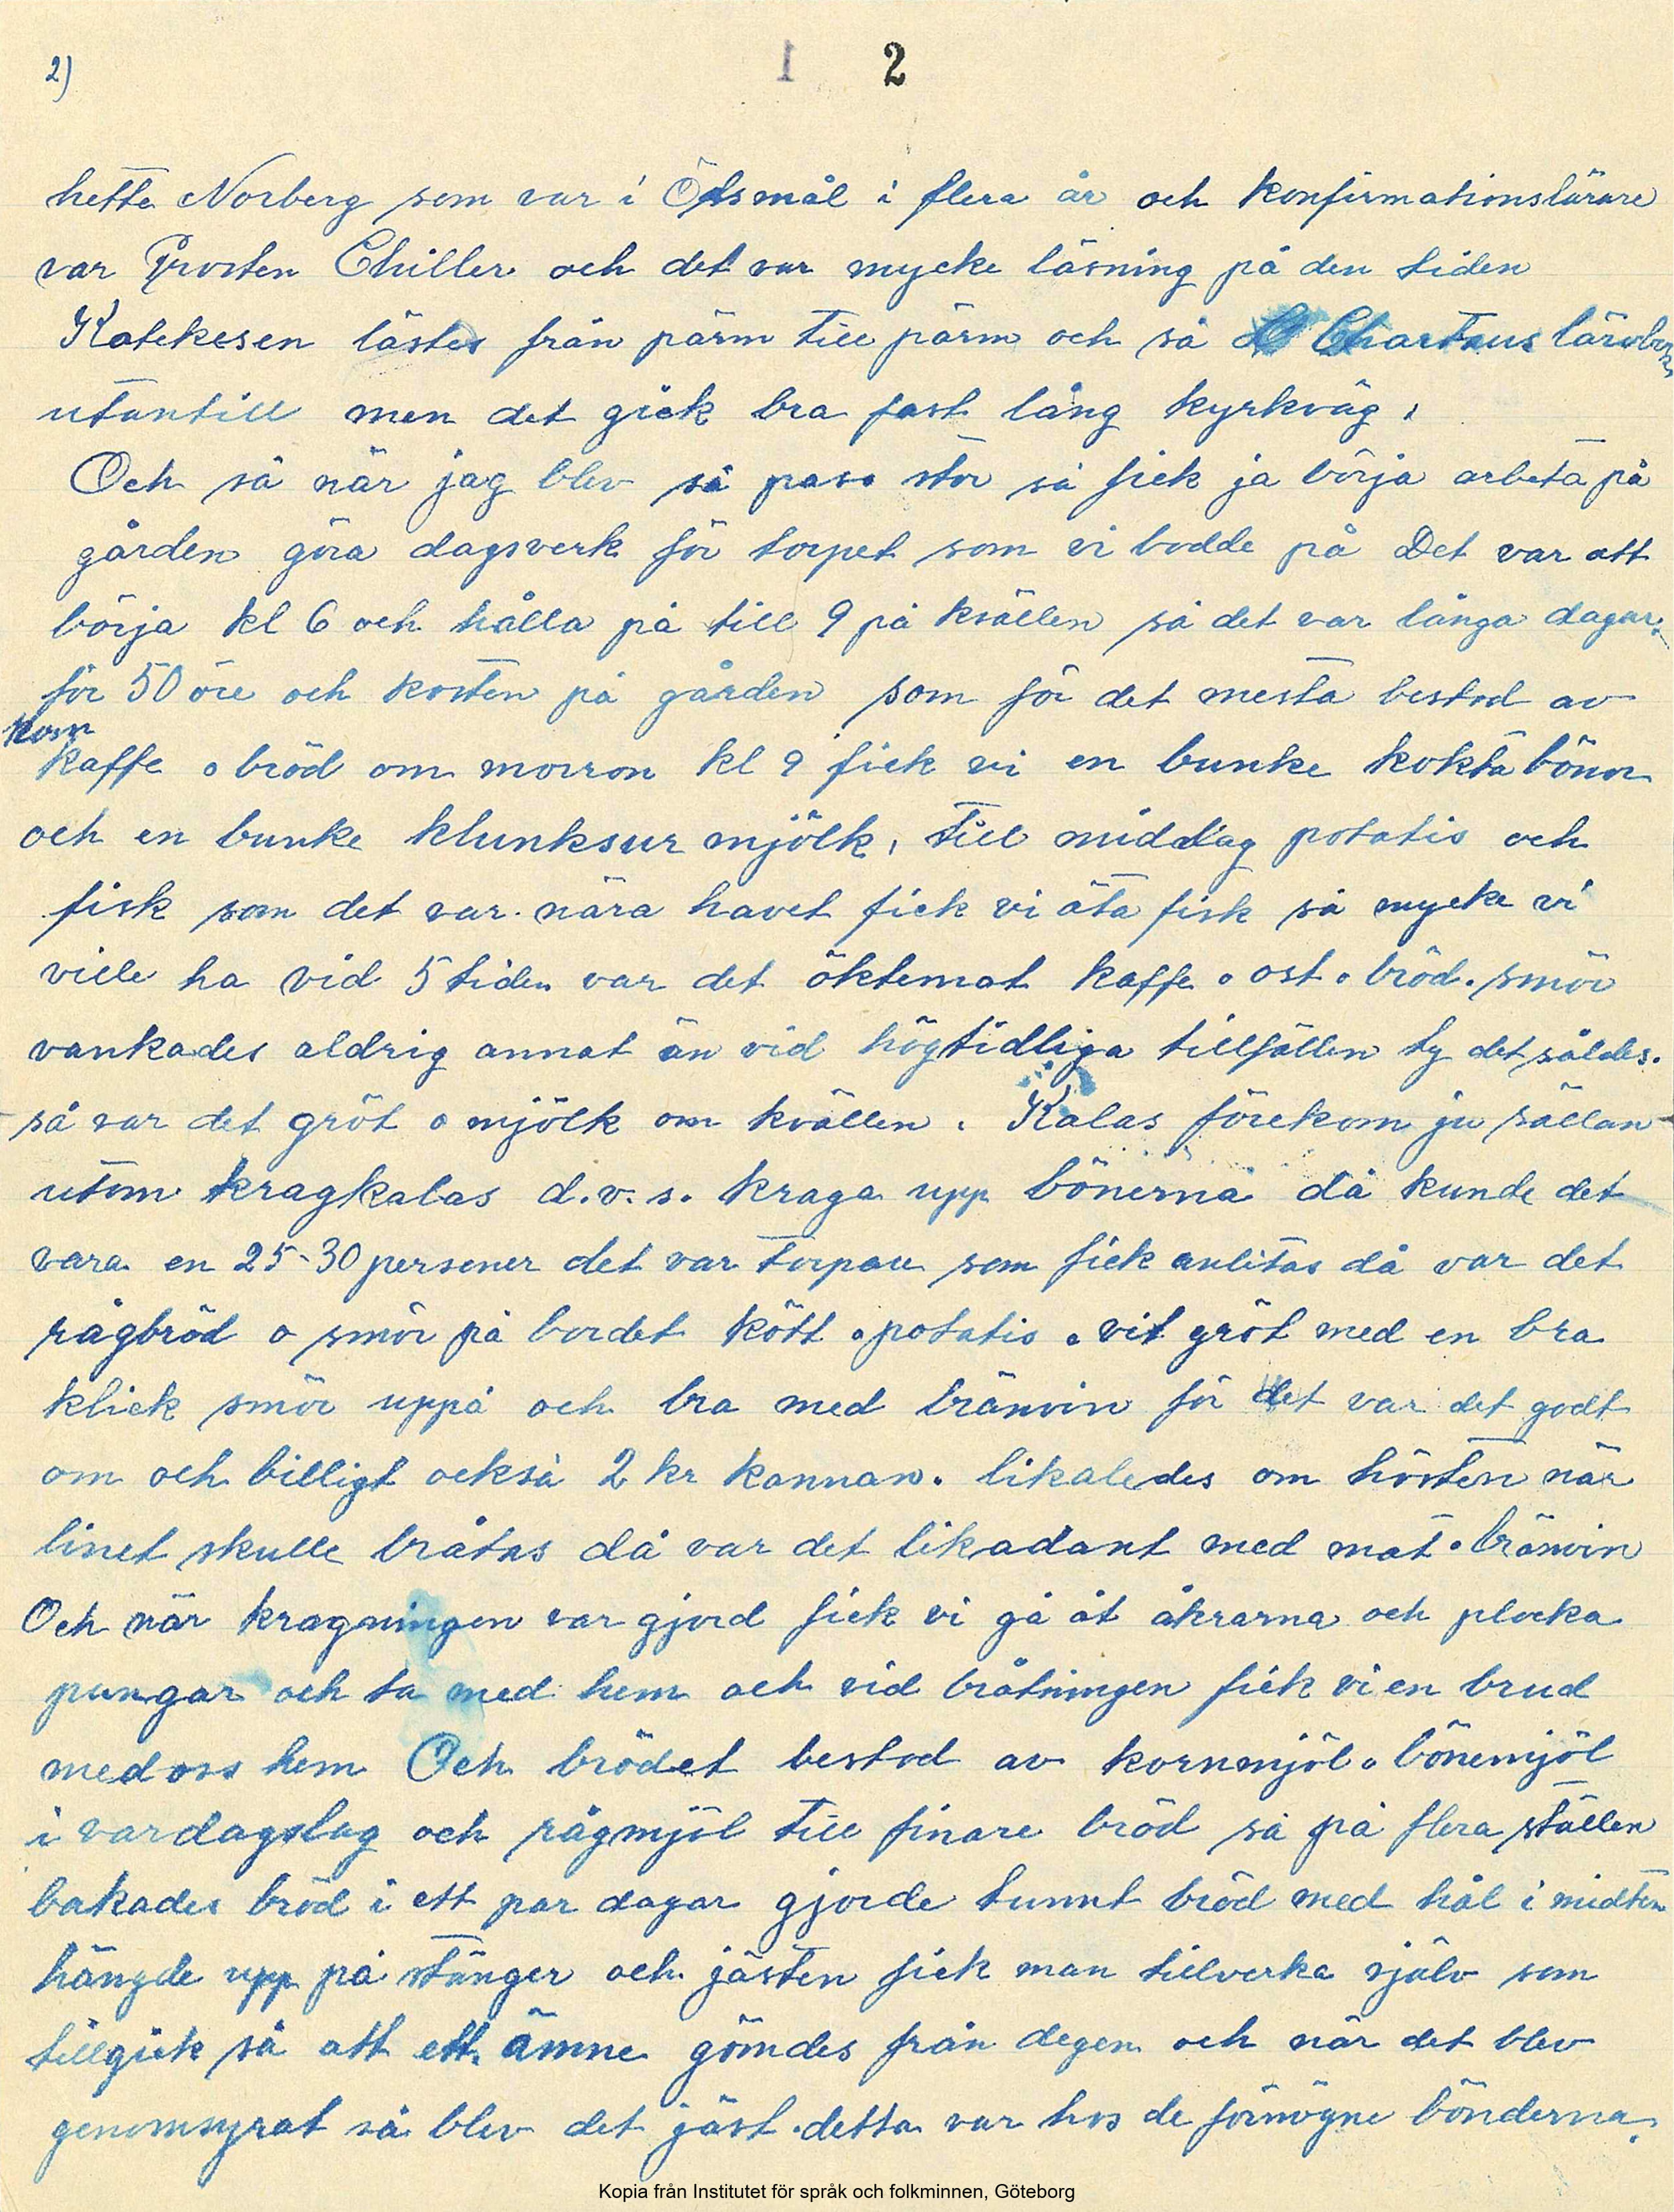 2)
1 2
hette Norberg som var i Ödsmål i flera år och konfirmationslärare
var Prosten Chiller och det var mycke läsning på den tiden
Katekesen lästes från pärm till pärm och så Chartaus
utantill men det gick bra fast lång kyrkväg,
Och så när jag blev så pass stor så fick ja börja arbeta på
gården göra dagsverk för torpet som vi bodde på Det var att
börja kl 6 och hålla på till 9 på kvällen så det var långa dagar.
för 50 öre och kosten på gården som för det mesta bestod av
korn
kaffe o bröd om morron kl 9 fick vi en bunke kokta bönor
och en bunke klunksur mjölk, till middag potatis och
fisk som det var nära havet fick vi äta fisk så mycke vi
ville ha vid 5 tiden var det öktemat kaffe o ost o bröd. smör
vankades aldrig annat än vid högtidliga tillfällen ty det såldes.
så var det gröt o mjölk om kvällen. Kalas förekom ju sällan
utom kragkalas d.v.s. kraga upp bönerna då kunde det
vara en 25-30 personer det var torpare som fick anlitas då var det
rågbröd o smör på bordet kött o potatis o vit gröt med en bra
klick smör uppå och bra med bränvin för det var det godt
om och billigt också 2 kr kannan. likaledes om hösten när
linet skulle bråtas då var det likadant med mat o bränvin
Och när kragningen var gjord fick vi gå åt åkrarna och plocka
pungar och ta med hem och vid bråtningen fick vi en brud
med oss hem Och brödet bestod av kornmjöl o bönemjöl
i vardagslag och rågmjöl till finare bröd så på flera ställen
bakades bröd i ett par dagar gjorde tunnt bröd med hål i midten
hängde upp på stänger och jästen fick man tillverka själv som
tillgick så att ett ämne gömdes från degen och när det blev
genomsyrat så blev det jäst. detta var hos de förmögne bönderna.
Kopia från Institutet för språk och folkminnen, Göteborg